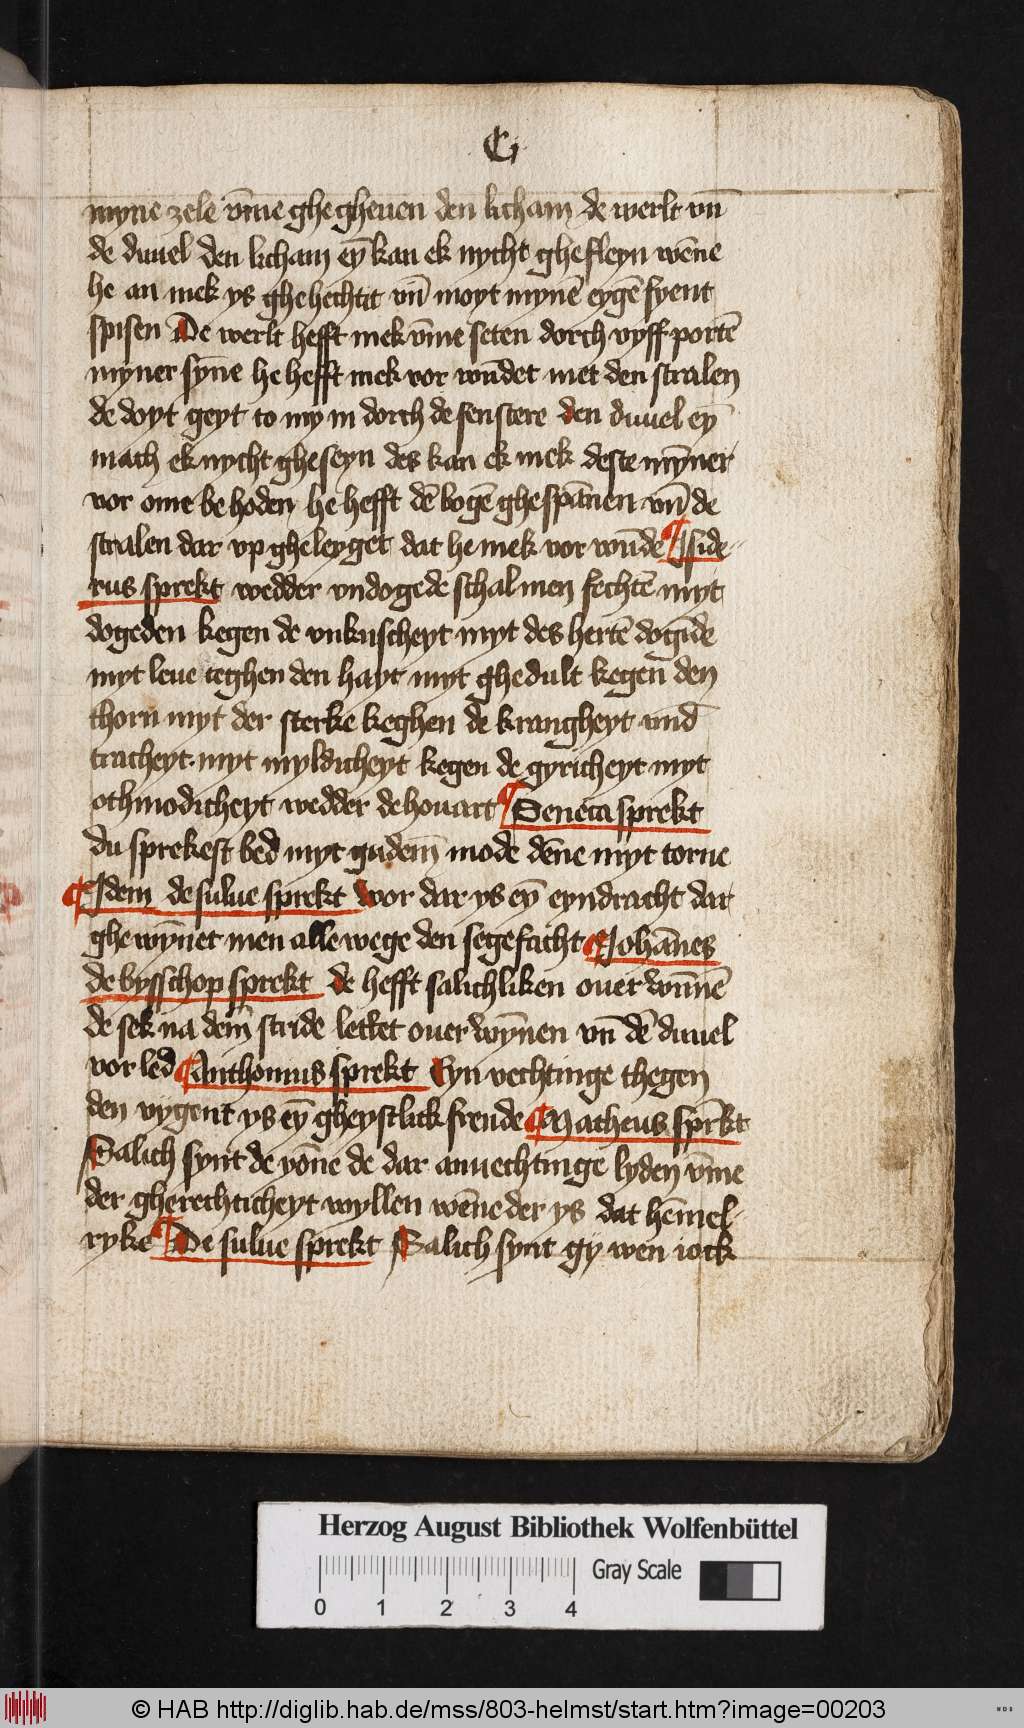 C
myne zele v̄me ghegheuen den licham de werlt vn̄
de duuel den licham ey̅ kan ek nycht ghefleyn wēne
he an mek ys ghehechtit vn̄ moyt mynē eygē fyent
spisen De werlt hefft mek v̄me seten dorch vyff portē
myner sȳne he hefft mek vor wūdet met den stralen
de doyt geyt to my in dorch de fenstere den duuel ey̅
mach ek nycht gheseyn des kan ek mek deste mȳner
vor ome be hoden he hefft dē bogē ghespānen vn̄ de
stralen dar vp gheleyget dat he mek vor wūde ¶ Iside-
rus sprekt wedder vndogede schal men fechtē myt
dogeden kegen de vnkuscheyt myt des hertē dogūde
myt leue teghen den hayt myt ghedult kegen den
thorn myt der sterke keghen de krangheyt vnd
tracheyt myt myldicheyt kegen de gyricheyt myt
othmodicheyt wedder de houart ¶ Seneca sprekt
du sprekest bed myt gudem̄ mode dēne myt torne
¶ Idem de sulue sprekt wor dar ys ey̅ eyndracht dar
ghewȳnet men allewege den segefacht ¶ Johānes
de bysschop sprekt de hefft salichliken ouer wūnē
de sek na dem̄ stride lettet ouer wȳnen vn̄ dē duuel
vor led ¶ Anthonius sprekt Eyn vechtinge thegen
den vygent ys ey̅ gheystlick freude ¶ Matheus sprēkt
Salich synt de yōne de dar anuechtinge lyden v̄me
der gherechticheyt wyllen wēne der ys dat hēmel-
ryke ¶ De sulue sprekt Salich synt gy wen iock
Herzog August Bibliothek Wolfenbüttel
Gray Scale
0 1 2 3 4
© HAB http://diglib.hab.de/mss/803-helmst/start.htm?image=00203